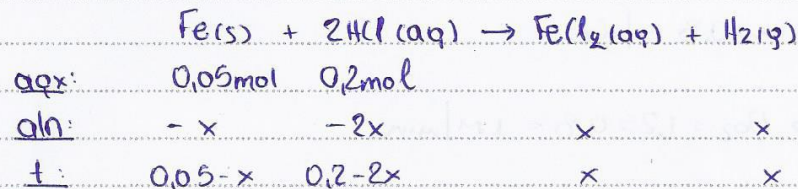 Fe(s) + 2HCl (aq) → FeCl₂ (aq) + H2(g)
αρχ: 0,05mol 0,2mol
αλη: - x - 2x x x
t: 0,05-x 0,2-2x x x